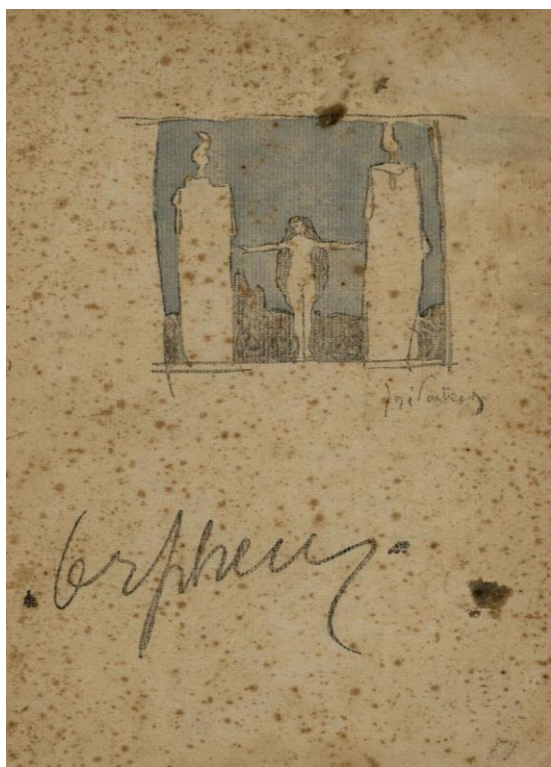 José Pacheco
.Orpheu.